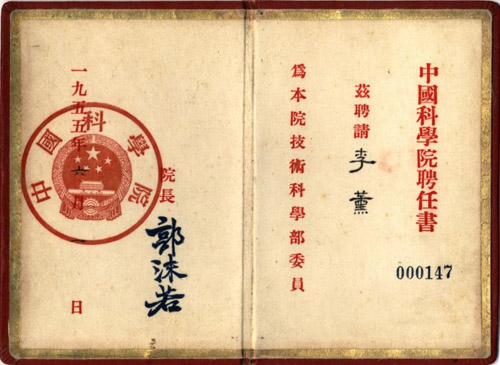 中國科學院聘任書
茲聘請李薰
為本院技術科學部委員
000147
院長
郭沫若
一九五五年六月一日
中國科學院